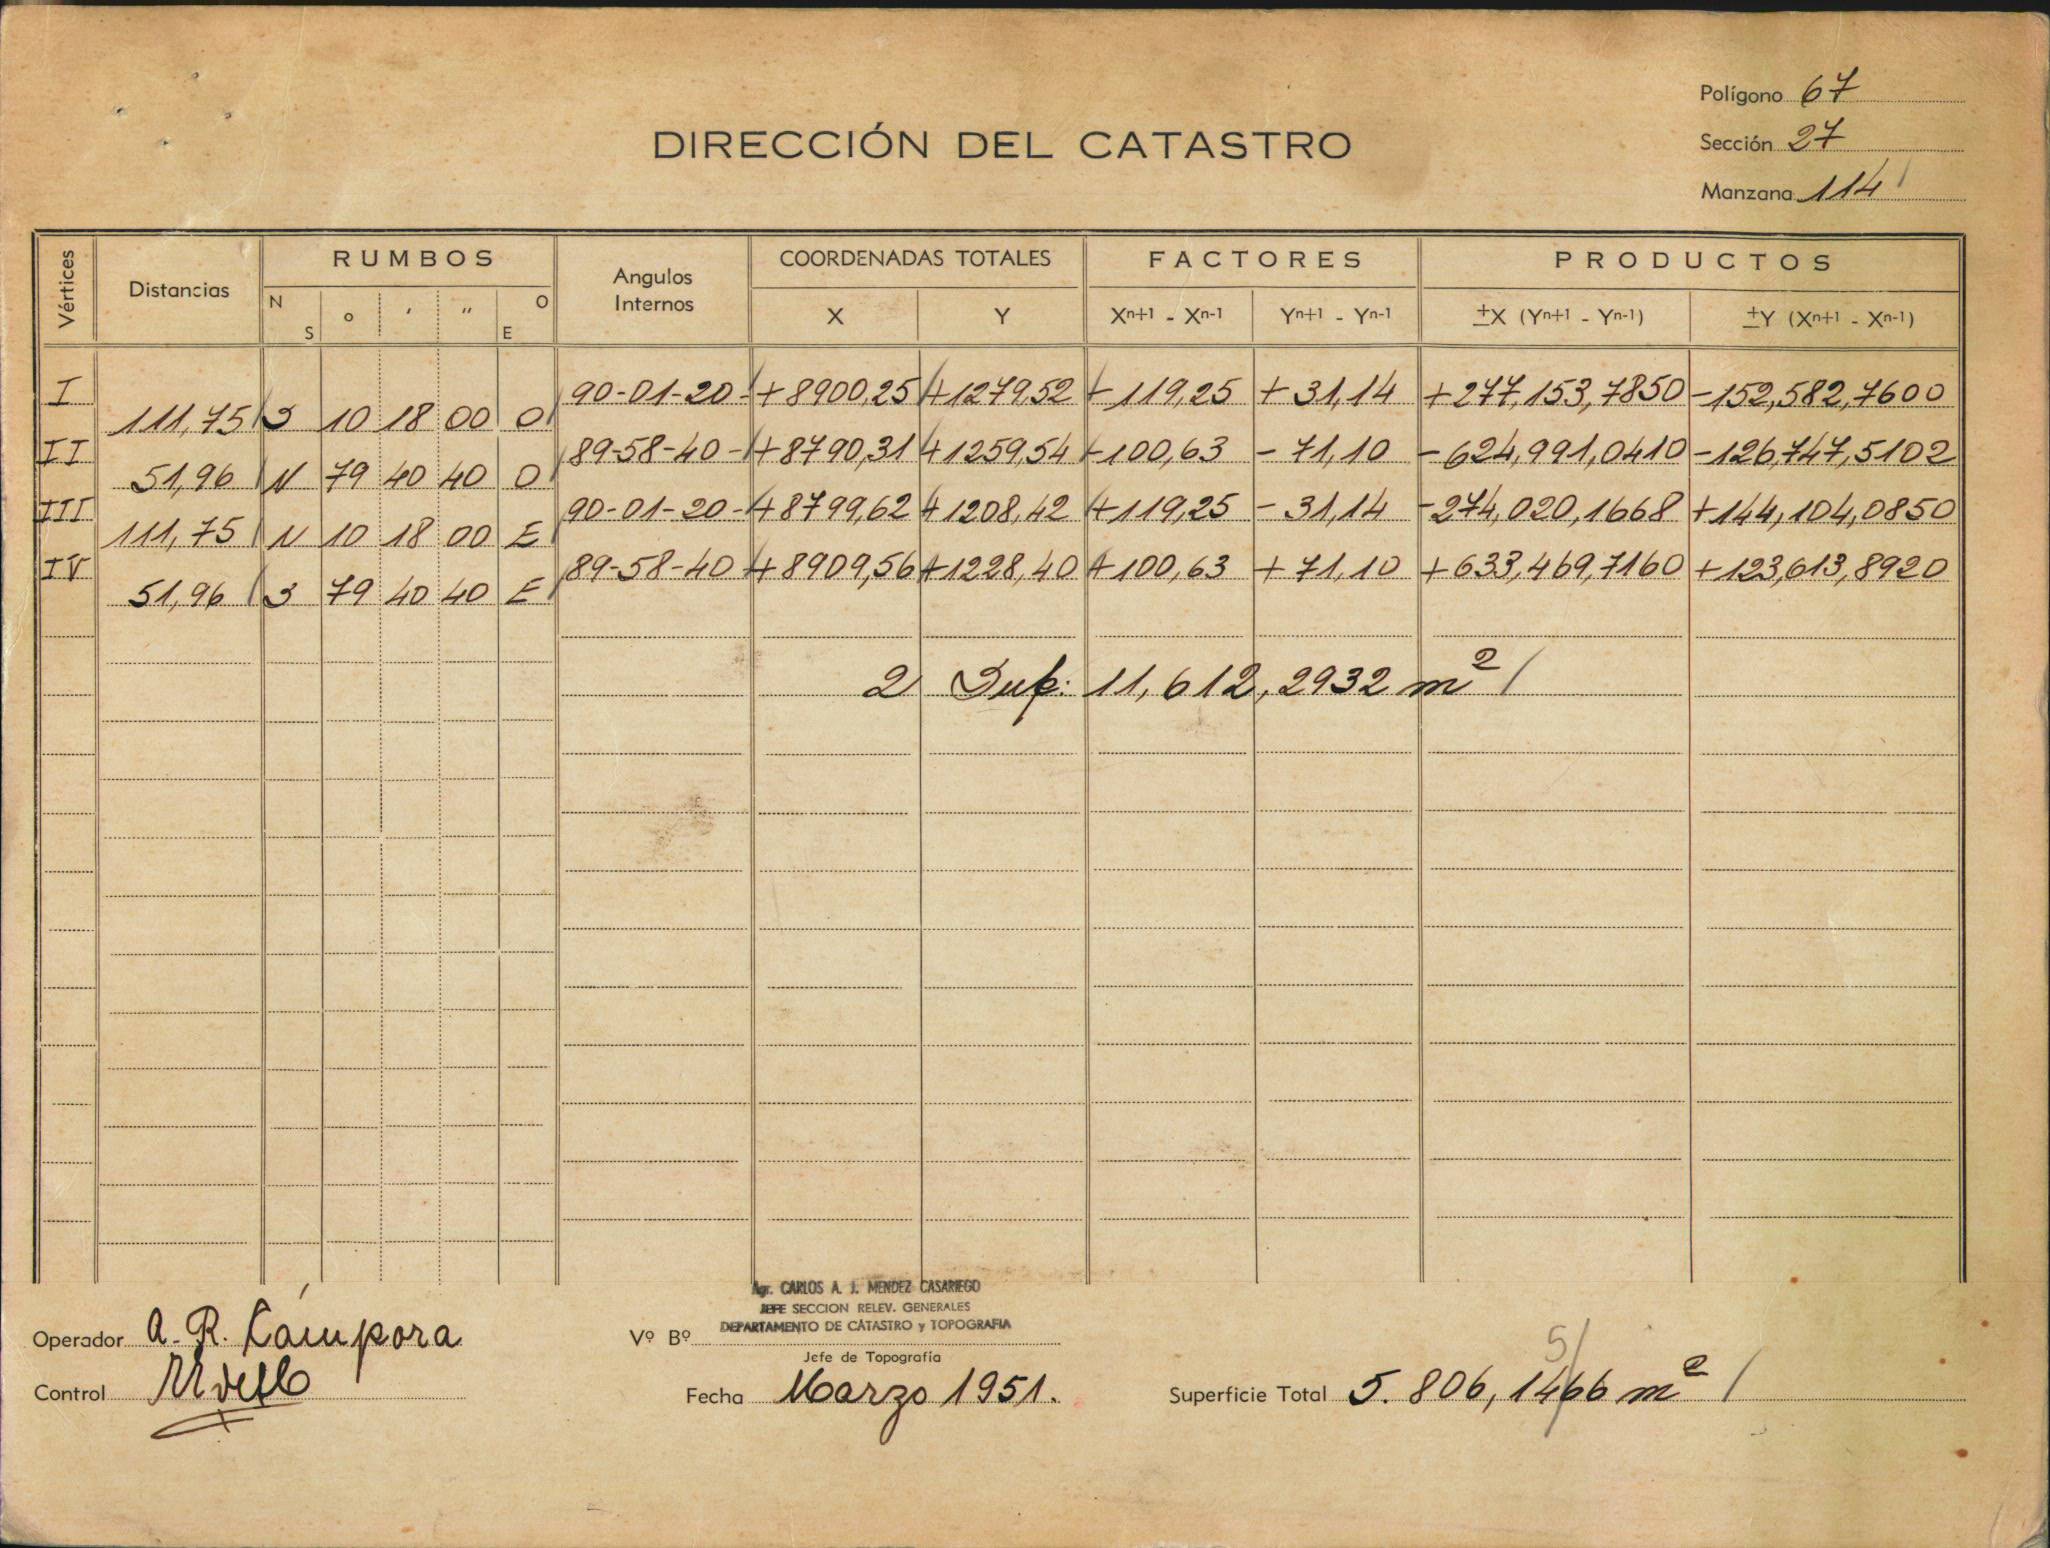 Polígono 67
DIRECCIÓN DEL CATASTRO
Sección 27
Manzana 114
Vértices Distancias RUMBOS Angulos Internos COORDENADAS TOTALES FACTORES PRODUCTOS
N S o ' " O E X Y Xn+1 - Xn-1 Yn+1 - Yn-1 ±X (Yn+1 - Yn-1) ±Y (Xn+1 - Xn-1)
I 90-01-20 +8900,25 +1279,52 -119,25 +31,14 +277,153,7850 -152,582,7600
111,75 S 10 18 00 O
II 89-58-40 +8790,31 +1259,54 -100,63 -71,10 -624,991,0410 -126,747,5102
51,96 N 79 40 40 O
III 90-01-20 +8799,62 +1208,42 +119,25 -31,14 -274,020,1668 +144,104,0850
111,75 N 10 18 00 E
IV 89-58-40 +8909,56 +1228,40 +100,63 +71,10 +633,469,7160 +123,613,8920
51,96 S 79 40 40 E
2 Sup: 11,612,2932 m²
Agr. CARLOS A. J. MENDEZ CASARIEGO
JEFE SECCION RELEV. GENERALES
DEPARTAMENTO DE CATASTRO y TOPOGRAFIA
Operador A. R. Cámpora Vº Bº
Jefe de Topografía
5
Control Fecha Marzo 1951. Superficie Total 5.806,1466 m²